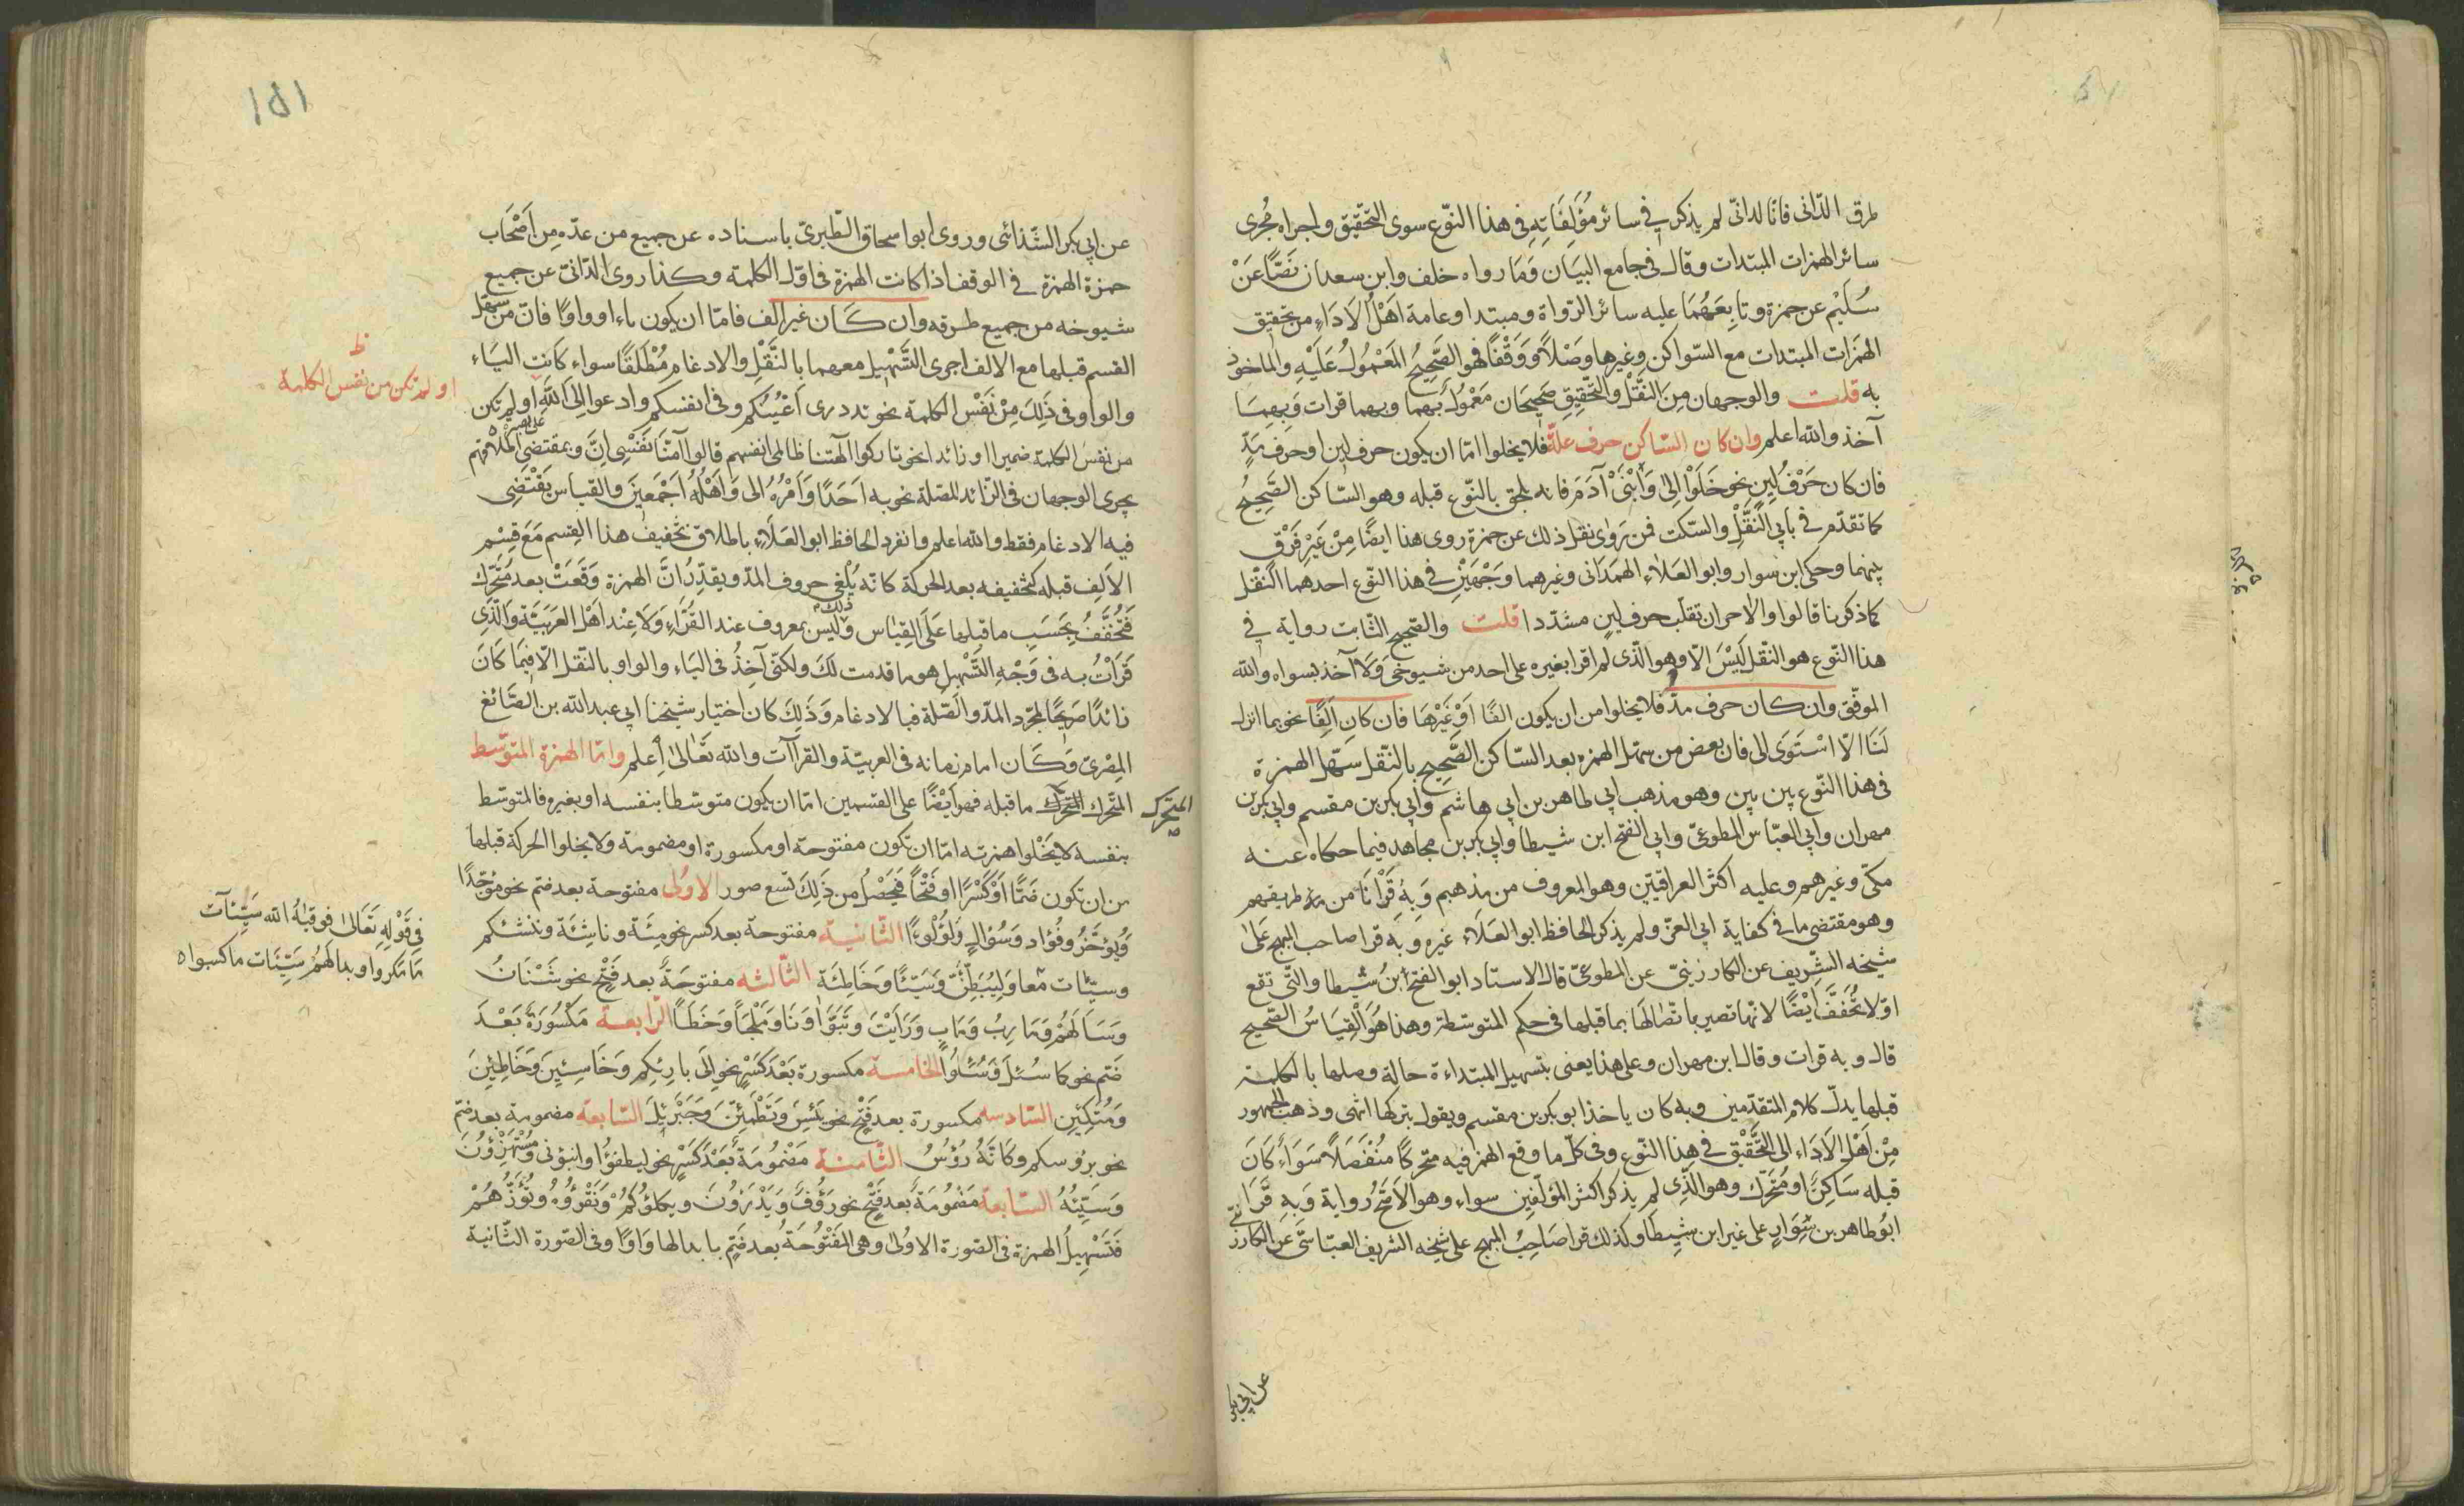 طرق الدّانى فانّ الدانىّ لم يذكر فى سائر مؤلّفَاتِهِ فى هذا النّوع سوى التّحقيق واجراه مُجرى
سائر الهمزات المبتدات وقال فى جامع البيَان وَمَا رواه خلف وابن سعدان نَصًّا عَنْ
سُلَيْم عن حمزة وتابِعَهُمَا عليه سائر الرّواة ومبتدا وعامة اَهْل الاَدَاءِ من تحقيق
الهَمَزات المبتدات مع السّواكن وغيرها وصْلاً وَوَقْفًا فهو الصَّحِيحُ المَعْمُولُ عَلَيْهِ والماخوذ
به قلت والوجهان مِنَ النَّقْل والتّحْقِيق صَحِيحَان مَعْمُولٌ بهما وبهما قرات وَبِهِمَا
آخذ والله اعلم وان كان السّاكن حرف علّة فلا يخلوا امّا ان يكون حرف لين او حرف مَدٍّ
فان كان حَرْفُ لِينٍ نحو خَلَوْا اِلىٰ وَابْنَىْ آدَمَ فانه يلحق بالنّوع قبله وهو السّاكن الصَّحِيحُ
كما تقدّم فى بابى النّقْل والسّكت فمن رَوَى نقل ذلك عن حمزة روى هذا ايضًا مِنْ غَيْرِ فَرْقٍ
بينهما وحكى ابن سوار وابو العَلاءِ الهمَدَانى وغيرهما وَجْهَيْنِ فى هذا النّوع احدهما النّقْل
كما ذكرنا قالوا والاخر ان تقلب حرف لينٍ مشدّدا قلت والصّحيح الثّابت رواية فى
هذا النّوع هو النقل لَيْسَ الّا وهو الّذى لم اقرا بغيره على احد من شيوخى وَلاَ آخذ بسواه والله
الموفّق وان كان حرف مدّ فلا يخلوا من ان يكون الفًا اَوْ غَيْرَهَا فان كان الفًا نحو بما انزل
لَنَا الاّ اسْتَوَى الى فان بعض من سهّل الهمزه بعد السّاكن الصَّحِيح بالنّقل سَهّل الهمزة
فى هذا النّوع بين بين وهو مذهب ابى طاهر بن ابى هاشم وابى بكر بن مقسم وابى بكر بن
مهران وابى العبّاس المطوعىّ وابى الفتح ابن شيطا وابى بكر بن مجاهد فيما حكاه عنه
مكىّ وغيرهم وعليه اكثر العراقيّين وهو المعروف من مذهبهم وَبِهِ قَرَانَا من طريقهم
وهو مقتضى ما فى كفاية ابى العزّ ولم يذكر الحافظ ابو العَلَاء غيره وَبِهِ قرا صاحب المبهج عَلَى
شيخه الشّريف عن الكارزينىّ عن المطوعىّ قال الاستاد ابو الفتح ابنُ شيطا والّتى تقع
اوّلا تُخَفَّفُ اَيْضًا لانّها تصير باتّصَالهَا بما قبلها فى حكم المتوسّطة وهذا هُوَ الْقِيَاسُ الصّحيح
قال وبه قرات وقال ابن مهران وعلى هذا يعنى بتسهيل المبتداءة حالة وصلها بالكلمة
قبلها يدلّ كلام المتقدّمين وبه كان ياخذ ابو بكر بن مقسم ويقول بتركها انتهى وذهب الجمهور
مِنْ اَهْل الاَدَاءِ الى التَّحْقِيْق فى هذا النّوع وفى كلّ ما وقع الهمز فيه متحرّكًا مُنْفَصَلاً سَوَاءً كَانَ
قبله سَاكِنٌ او مُتَحَرّك وهو الّذِى لم يذكر اكثر المؤلّفين سواه وهو الاَصَحُّ رواية وَبِهِ قَرَا
ابُو طاهر بن سَوَارٍ على غير ابن شِيطَا وكذلك قرا صَاحِبُ المبهج على شيخه الشريف العبّاسَّى عَنِ الكارزينّى
عن ابى بكر
١٥١
عن ابى بكر الشّذائى وروى ابو اسحاق الطّبرىّ باسناده عن جميع من عدّه مِن اَصْحَاب
حمزة الهمزة فى الوقف اذا كانت الهمزة فى اوّل الكلمة وكذا روى الدّانىّ عن جميع
شيوخه من جميع طرقه وان كَان غير الف فامّا ان يكون ياء او واوًا فانّ من سهّل
القسم قبلها مع الالف اجرى التَّسْهِيل معهما بالنَّقْلِ والادغام مُطْلَقًا سواء كَانت اليَاء
والواو فى ذَلِكَ مِنْ نَفْس الكلمة نحو تزدرى اَعْيُنُكم وفى انفسكم وادعوا اِلى اللهِ او لم تكن
ظ
او لم تكن من نفس الكلمة
من نفس الكلمة ضميرا او زائدا نحو تاركوا آلهتنا ظالمى انفسهم قالوا آمنّا نَفْسِى اِنَّ وبمقتضى اطلاقهم
يجرى الوجهان فى الزّائد للصّلة نحو به اَحَدًا وَاَمْرُهُ الى وَاَهْلُهُ اَجْمَعِينَ والقياس يَقْتَضِى
فيه الادغام فقط والله اعلم وانفرد الحافظ ابو العَلَاءِ باطلاق تخفيف هذا القِسم مَعَ قِسْم
الاَلِف قبله كتخفيفه بعد الحركة كانّه يُلْغى حروف المدّ ويقدّرُ انَّ الهمزة وَقَعَتْ بعد مُتَحَرّك
فَتُخَفَّفُ بِحَسَبِ ما قبلها عَلَى القِيَاس وَلَيْسَ ذلك بمعروف عند القُرَّاءِ وَلَا عِنْد اَهْل العَرَبيَّة وَالَّذِى
قَرَاْتُ به فى وَجْهِ التَّسْهِيلِ هو ما قدمت لَكَ ولكنّى آخِذُ فى اليَاءِ والواو بالنّقل الّا فيمَا كَانَ
زائدًا صَرِيحًا لمجرّد المدّ والصّلة فبالادغام وَذَلِكَ كان اختيار شيخنا ابى عبد الله بن الصّائغ
المِصْرىّ وَكَان امام زمانه فى العربيّة والقراآت والله تَعَالىٰ اعلم وامّا الهمزة المتوسّط
المتحرّك
المتحرّك المتحرّك ما قبله فهو اَيْضًا على القسمين امّا ان يكون متوسّطا بنفسه او بغيره فالمتوسّط
بنفسه لا يَخْلوا همزته امّا ان تكون مفتوحة او مكسورة او مضمومة ولا يخلوا الحركة قبلها
من ان تكون ضَمًّا اَوْ كَسْرًا او فَتْحًا فَيَحْصُلُ من ذَلِكَ تسع صور الاوْلى مفتوحة بعد ضم نحو مؤجّلًا
وَيُوَخّرُ وفُؤَاد وَسُؤالٍ وَلُؤْلُوءًا الثّانية مفتوحة بعد كسر نحو مِئَة وناشِئَة وننشئكم
وسيّئات معا وَلِيُبَطِّئَنَّ وَسَيّئًا وَخَاطِئَة الثّالثه مفتوحَةً بعد فَتْحٍ نحو شَنْئَانُ
فى قَوْلِهِ تَعَالىٰ فوقيهُ الله سَيّئآت
مَا مَكروا وبدا لَهُمْ سَيّئَات ما كسبوا
وَسَاَلهُمْ وَمَارِبُ وَمَابٍ وَرَاَيْتَ وَتَبَوَّاَ وَنَا وَمَلْجَاً وَخَطَاً الرّابعة مَكْسُورَةً بَعْدَ
ضَمّ نحو كما سُئِلَ وَسُئِلُوا الخامسة مكسورة بَعْدَ كَسْرٍ نحو اِلىَ بارِئِكم وَخَاسِئِينَ وَخَاطِئِينَ
وَمُتَّكِئِين السّادسه مكسورة بعد فَتْحٍ نحو يَئِسَ وَتَطْمَئِنّ وَجَبْرَئِلَ السّابعة مضمومة بعد ضمّ
نحو برؤسكم وكَانّهُ رُؤْسُ الثّامنة مَضْمُومَةً بَعْدَ كَسْرٍ نحو ليطفؤا وانبؤنى ومُسْتَهْزِؤُنَ
وَسَيّئُهُ التّاسعة مَضْمُومَةً بعد فَتْحٍ نحو رَؤُفٌ وَيَدْرَؤُنَ ويكلؤُكُمْ وَنَقْرَؤُهُ وتَؤُزُّهُمْ
فَتَسْهِيلُ الهمزة فى الصّورة الاوْلى وهى المَفْتُوحَةُ بعد ضَمّ بابدالها وَاوًا وفى الصّورة الثّانية